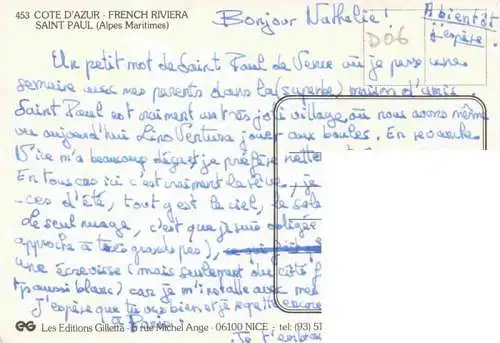 453 COTE D'AZUR - FRENCH RIVIERA
SAINT PAUL (Alpes Maritimes)
Bonjour Nathalie !
A bientôt
j'espère.
D06
Un petit mot de Saint Paul de Vence où je passe une
semaine avec mes parents dans la (superbe) maison d'amis.
Saint Paul est vraiment un très joli village, où nous avons même
vu aujourd'hui Lino Ventura jouer aux boules. En revanche
Nice m'a beaucoup déçue et je préfère nette
En tous cas ici c'est vraiment le rêve, je
-ces d'été, tout y est le ciel, le sole
Le seul nuage, c'est que je suis obligée
approche à très grands pas),
une écrevisse (mais seulement du côté
aussi blanc) car je m'installe avec mes
J'espère que tu vas bien et je regrette encore
à Paris.
Je t'embra
EG Les Editions Gilletta - 6 rue Michel Ange - 06100 NICE - tel: (93) 51